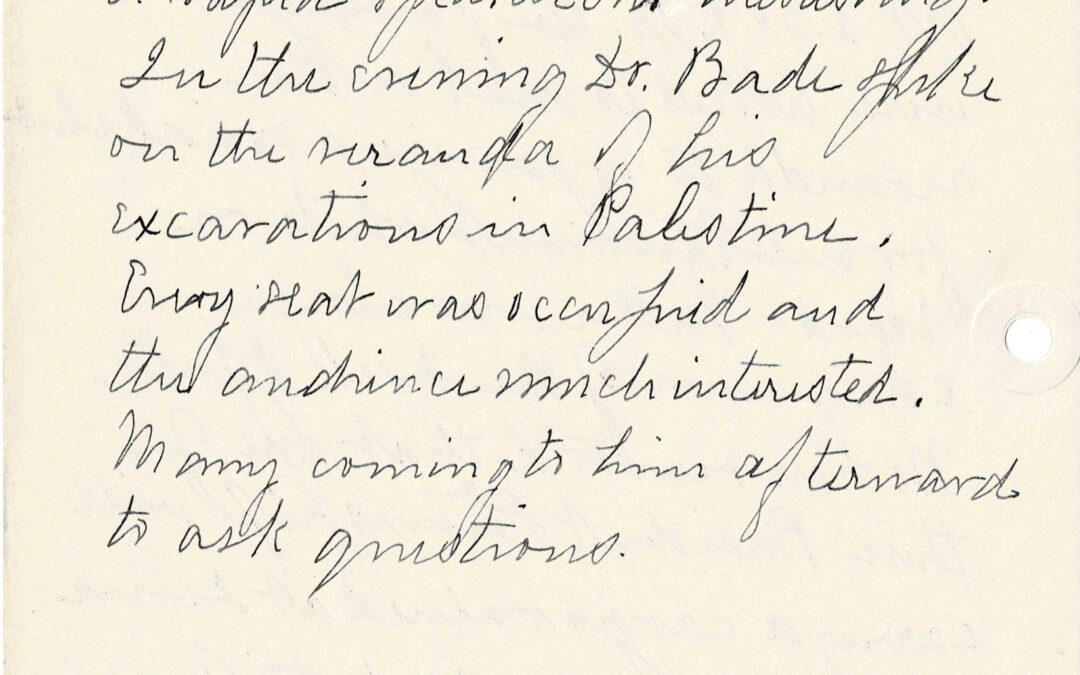 a rapid speaker our interesting.
In the evening Dr. Bade spoke
on the veranda of his
excavations in Palestine.
Every seat was occupied and
the audience much interested.
Many coming to him afterward
to ask questions.